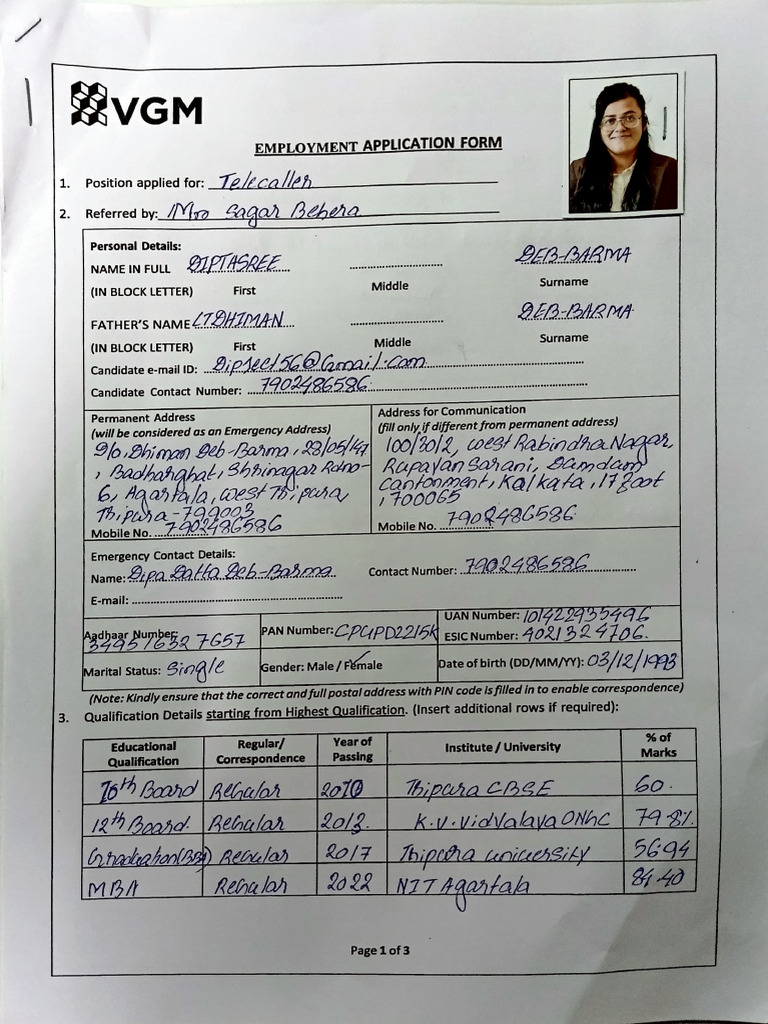 VGM
EMPLOYMENT APPLICATION FORM
1. Position applied for: Telecaller
2. Referred by: Mro Sagar Behera
Personal Details:
NAME IN FULL DIPTASREE .................... DEB-BARMA
(IN BLOCK LETTER) First Middle Surname
FATHER'S NAME LTDHIMAN .................... DEB-BARMA
(IN BLOCK LETTER) First Middle Surname
Candidate e-mail ID: Dipsec156@Gmail.com
Candidate Contact Number: 7902486586
Permanent Address
(will be considered as an Emergency Address)
D/o, Dhiman Deb-Barma, 28/05/47
, Badharghat, Shrinagar Rdno-
6, Agartala, west Tripura,
Tripura-799003
Mobile No. 7902486586
Address for Communication
(fill only if different from permanent address)
100/30/2, west Rabindra Nagar,
Rupayan Sarani, Damdam
cantonment, Kalkata, 17 foot
, 700065
Mobile No. 7902486586
Emergency Contact Details:
Name: Dipa Datta Deb-Barma Contact Number: 7902486586
E-mail:
Aadhaar Number: 3495 1632 7657
PAN Number: CPUPD2215K
UAN Number: 101422935496
ESIC Number: 4021324706.
Marital Status: Single
Gender: Male / Female
Date of birth (DD/MM/YY): 03/12/1993
(Note: Kindly ensure that the correct and full postal address with PIN code is filled in to enable correspondence)
3. Qualification Details starting from Highest Qualification. (Insert additional rows if required):
Educational Qualification Regular/ Correspondence Year of Passing Institute / University % of Marks
10th Board Regular 2010 Tripura CBSE 60.
12th Board. Regular 2013. K.V. Vidyalaya ONGC 79.8%
Graduation(BBA) Regular 2017 Tripura university 56.94
MBA Regular 2022 NIT Agartala 84.40
Page 1 of 3